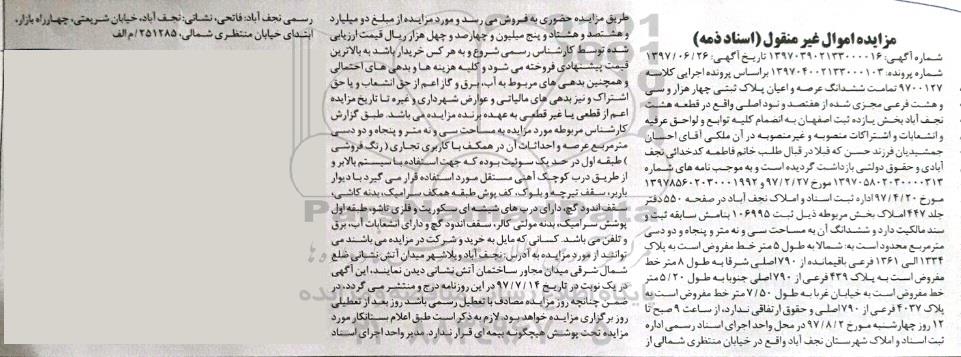 مزایده اموال غیر منقول (اسناد ذمه)
شماره آگهی: ۱۳۹۷۰۳۹۰۲۱۳۳۰۰۰۰۱۶ تاریخ آگهی: ۱۳۹۷/۰۶/۲۶
شماره پرونده: ۱۳۹۷۰۴۰۰۲۱۳۳۰۰۰۱۰۳ براساس پرونده اجرایی کلاسه
۹۷۰۰۱۲۷ تمامت ششدانگ عرصه و اعیان پلاک ثبتی چهار هزار و سی
و هشت فرعی مجزی شده از هفتصد و نود اصلی واقع در قطعه هشت
نجف آباد بخش یازده ثبت اصفهان به انضمام کلیه توابع و لواحق عرفیه
و انشعابات و اشتراکات منصوبه و غیر منصوبه در آن ملکی آقای احسان
جمشیدیان فرزند حسن که قبلا در قبال طلب خانم فاطمه کدخدائی نجف
آبادی و حقوق دولتی بازداشت گردیده است و به موجب نامه های شماره
۱۳۹۷۰۵۸۰۲۰۳۰۰۰۰۳۱۳ مورخ ۹۷/۲/۲۷ و ۱۳۹۷۸۵۶۰۲۰۳۰۰۰۱۹۹۲
مورخ ۹۷/۴/۲۰ اداره ثبت اسناد و املاک نجف آباد در صفحه ۵۵۰ دفتر
جلد ۴۴۷ املاک بخش مربوطه ذیل ثبت ۱۰۶۹۹۵ بنامش سابقه ثبت و
سند مالکیت دارد و ششدانگ آن به مساحت سی و نه متر و پنجاه و دو دسی
مترمربع محدود است به: شمالا به طول ۵ متر خط مفروض است به پلاک
۱۳۳۴ الی ۱۳۶۱ فرعی باقیمانده از ۷۹۰ اصلی شرقا به طول ۸ متر خط
مفروض است به پلاک ۴۳۹ فرعی از ۷۹۰ اصلی جنوبا به طول ۵/۲۰ متر
خط مفروض است به خیابان غربا به طول ۷/۵۰ متر خط مفروض است به
پلاک ۴۰۳۷ فرعی از ۷۹۰ اصلی و حقوق ارتفاقی ندارد، از ساعت ۹ صبح تا
۱۲ روز چهارشنبه مورخ ۹۷/۸/۲ در محل واحد اجرای اسناد رسمی اداره
ثبت اسناد و املاک شهرستان نجف آباد واقع در خیابان منتظری شمالی از
طریق مزایده حضوری به فروش می رسد و مورد مزایده از مبلغ دو میلیارد
و هشتصد و هشتاد و پنج میلیون و چهارصد و چهل هزار ریال قیمت ارزیابی
شده توسط کارشناس رسمی شروع و به هر کس خریدار باشد به بالاترین
قیمت پیشنهادی فروخته می شود و کلیه هزینه ها و بدهی های احتمالی
و همچنین بدهی های مربوط به آب، برق و گاز اعم از حق انشعاب و یا حق
اشتراک و نیز بدهی های مالیاتی و عوارض شهرداری و غیره تا تاریخ مزایده
اعم از قطعی یا غیر قطعی به عهده برنده مزایده می باشد. طبق گزارش
کارشناس مربوطه مورد مزایده به مساحت سی و نه متر و پنجاه و دو دسی
مترمربع عرصه و احداثات آن در همکف با کاربری تجاری (رنگ فروشی
) طبقه اول در حد یک سوئیت بوده که جهت استفاده با سیستم بالابر و
از طریق درب کوچک آهنی مستقل مورد استفاده قرار می گیرد با دیوار
باربر، سقف تیرچه و بلوک، کف پوش طبقه همکف سرامیک، بدنه کاشی،
سقف اندود گچ، دارای درب های شیشه ای سکوریت و فلزی تاشو، طبقه اول
پوشش سرامیک، بدنه مولتی کالر، سقف اندود گچ و دارای انشعابات آب، برق
و تلفن می باشد. کسانی که مایل به خرید و شرکت در مزایده می باشند می
توانند از مورد مزایده به آدرس: نجف آباد ویلاشهر میدان آتش نشانی ضلع
شمال شرقی میدان مجاور ساختمان آتش نشانی دیدن نمایند، این آگهی
در یک نوبت در تاریخ ۹۷/۷/۱۴ در این روزنامه درج و منتشر می گردد، در
ضمن چنانچه روز مزایده مصادف با تعطیل رسمی باشد روز بعد از تعطیلی
روز برگزاری مزایده خواهد بود. لازم به ذکر است طبق اعلام بستانکار مورد
مزایده تحت پوشش هیچگونه بیمه ای قرار ندارد. مدیر واحد اجرای اسناد
رسمی نجف آباد: فاتحی، نشانی: نجف آباد، خیابان شریعتی، چهارراه بازار،
ابتدای خیابان منتظری شمالی، ۲۵۱۲۸۵/م الف